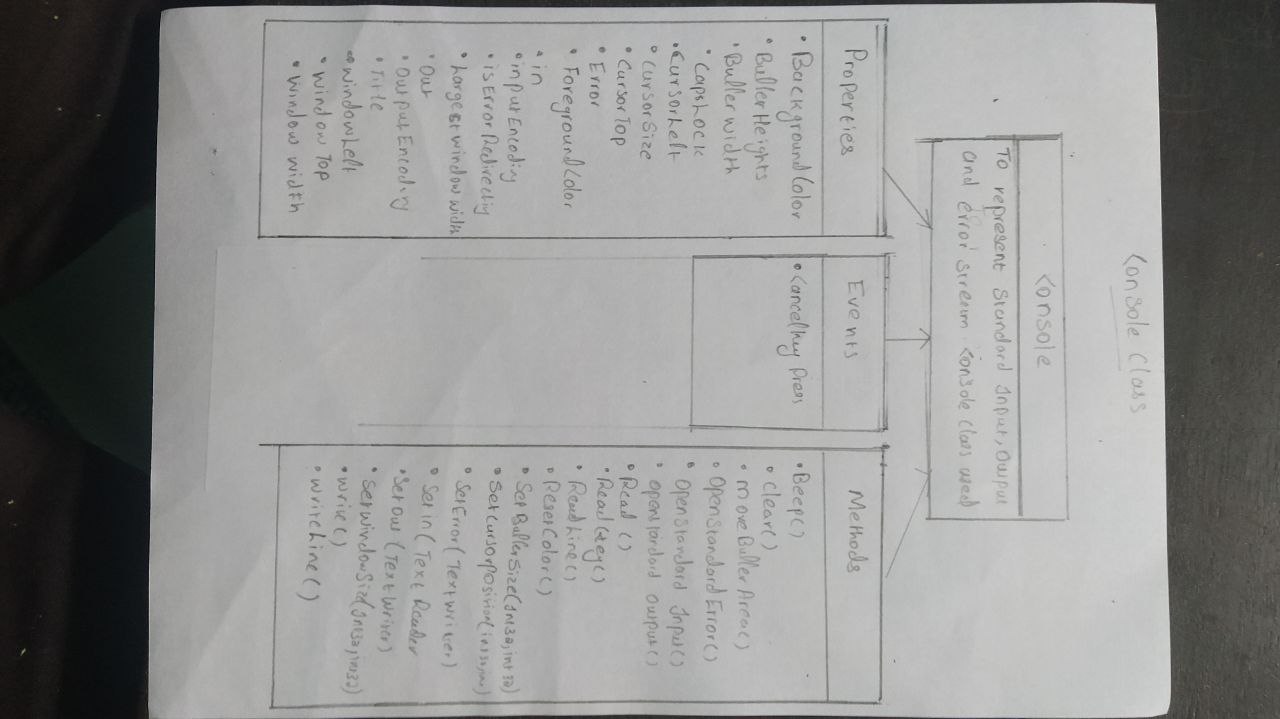 Console Class
Console
To represent Standard Input, Output
and error Stream Console Class used
Properties
• Background Color
• BufferHeights
• BufferWidth
• CapsLock
• CursorLeft
• CursorSize
• CursorTop
• Error
• ForegroundColor
• in
• inputEncoding
• isErrorRedirectig
• Largest window width
• Out
• OutputEncoding
• Title
• WindowLeft
• Window Top
• Window width
Events
• Cancelkey Press
Methods
• Beep()
• clear()
• moveBufferArea()
• OpenStandardError()
• OpenStandard Input()
• openstandard output()
• Read ()
• ReadKey()
• ReadLine()
• ResetColor()
• SetBufferSize(Int32,int32)
• SetCursorPosition(int32,int)
• SetError(TextWriter)
• Setin(TextReader
• SetOut (TextWriter)
• SetWindowSize(Int32,int32)
• write()
• writeLine()